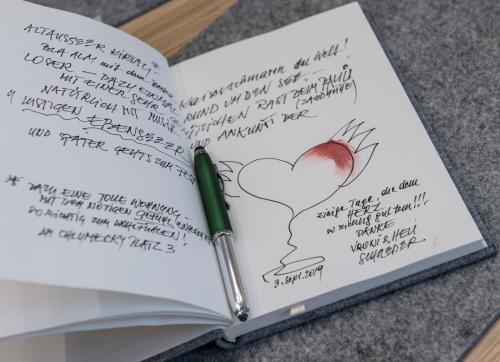 ALTAUSSEER KIRTAG! *
LOSER — DAZU EINMAL
MIT EINER SEHR
NATÜRLICH MIT MUSIK
LUSTIGEN EBENSEER
UND SPÄTER GEHTS ZUM FEST
* DAZU EINE TOLLE WOHNUNG —
MIT DEM NÖTIGEN GEFÜHL
SO RICHTIG ZUM WOHLFÜHLEN!
AM CHLUMECKY PLATZ 3
Kaiserschmarrn der Welt!
RUND UM DEN SEE —
RAST BEIM
(JAGDHÜTTE)
UND ANKUNFT DER
Einige Tage, die dem
HERZ
so richtig gut tun!!!
DANKE
VRONI & HELI
SCHREDER
3. Sept. 2019